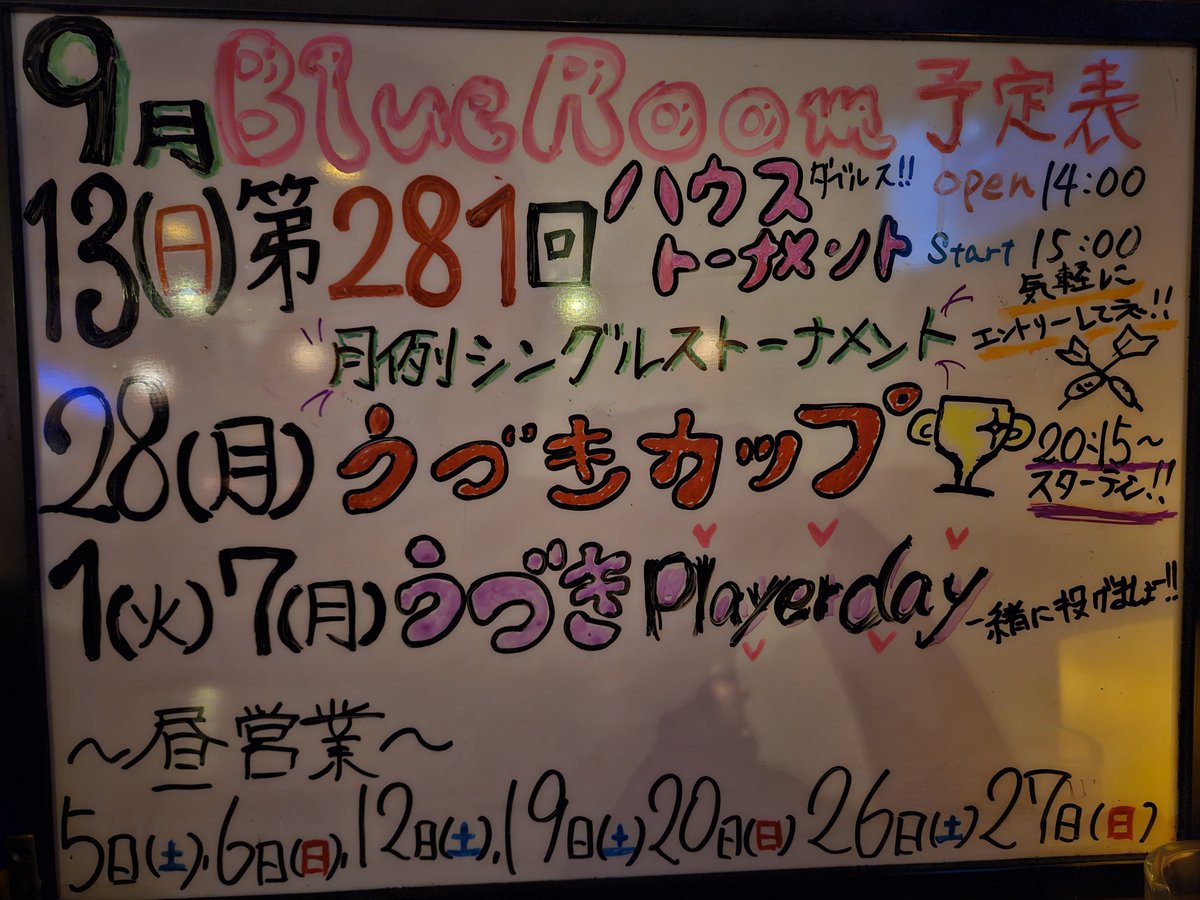 9月 Blue Room 予定表
13(日) 第281回 ハウストーナメント ダブルス!!
open 14:00
Start 15:00
気軽に
エントリーしてネ!!
月例シングルストーナメント
28(月) うづきカップ
20:15～
スターティン!!
1(火) 7(月) うづき Playerday 一緒に投げましょー!!
～昼営業～
5日(土), 6日(日), 12日(土), 19日(土) 20日(日) 26日(土) 27日(日)